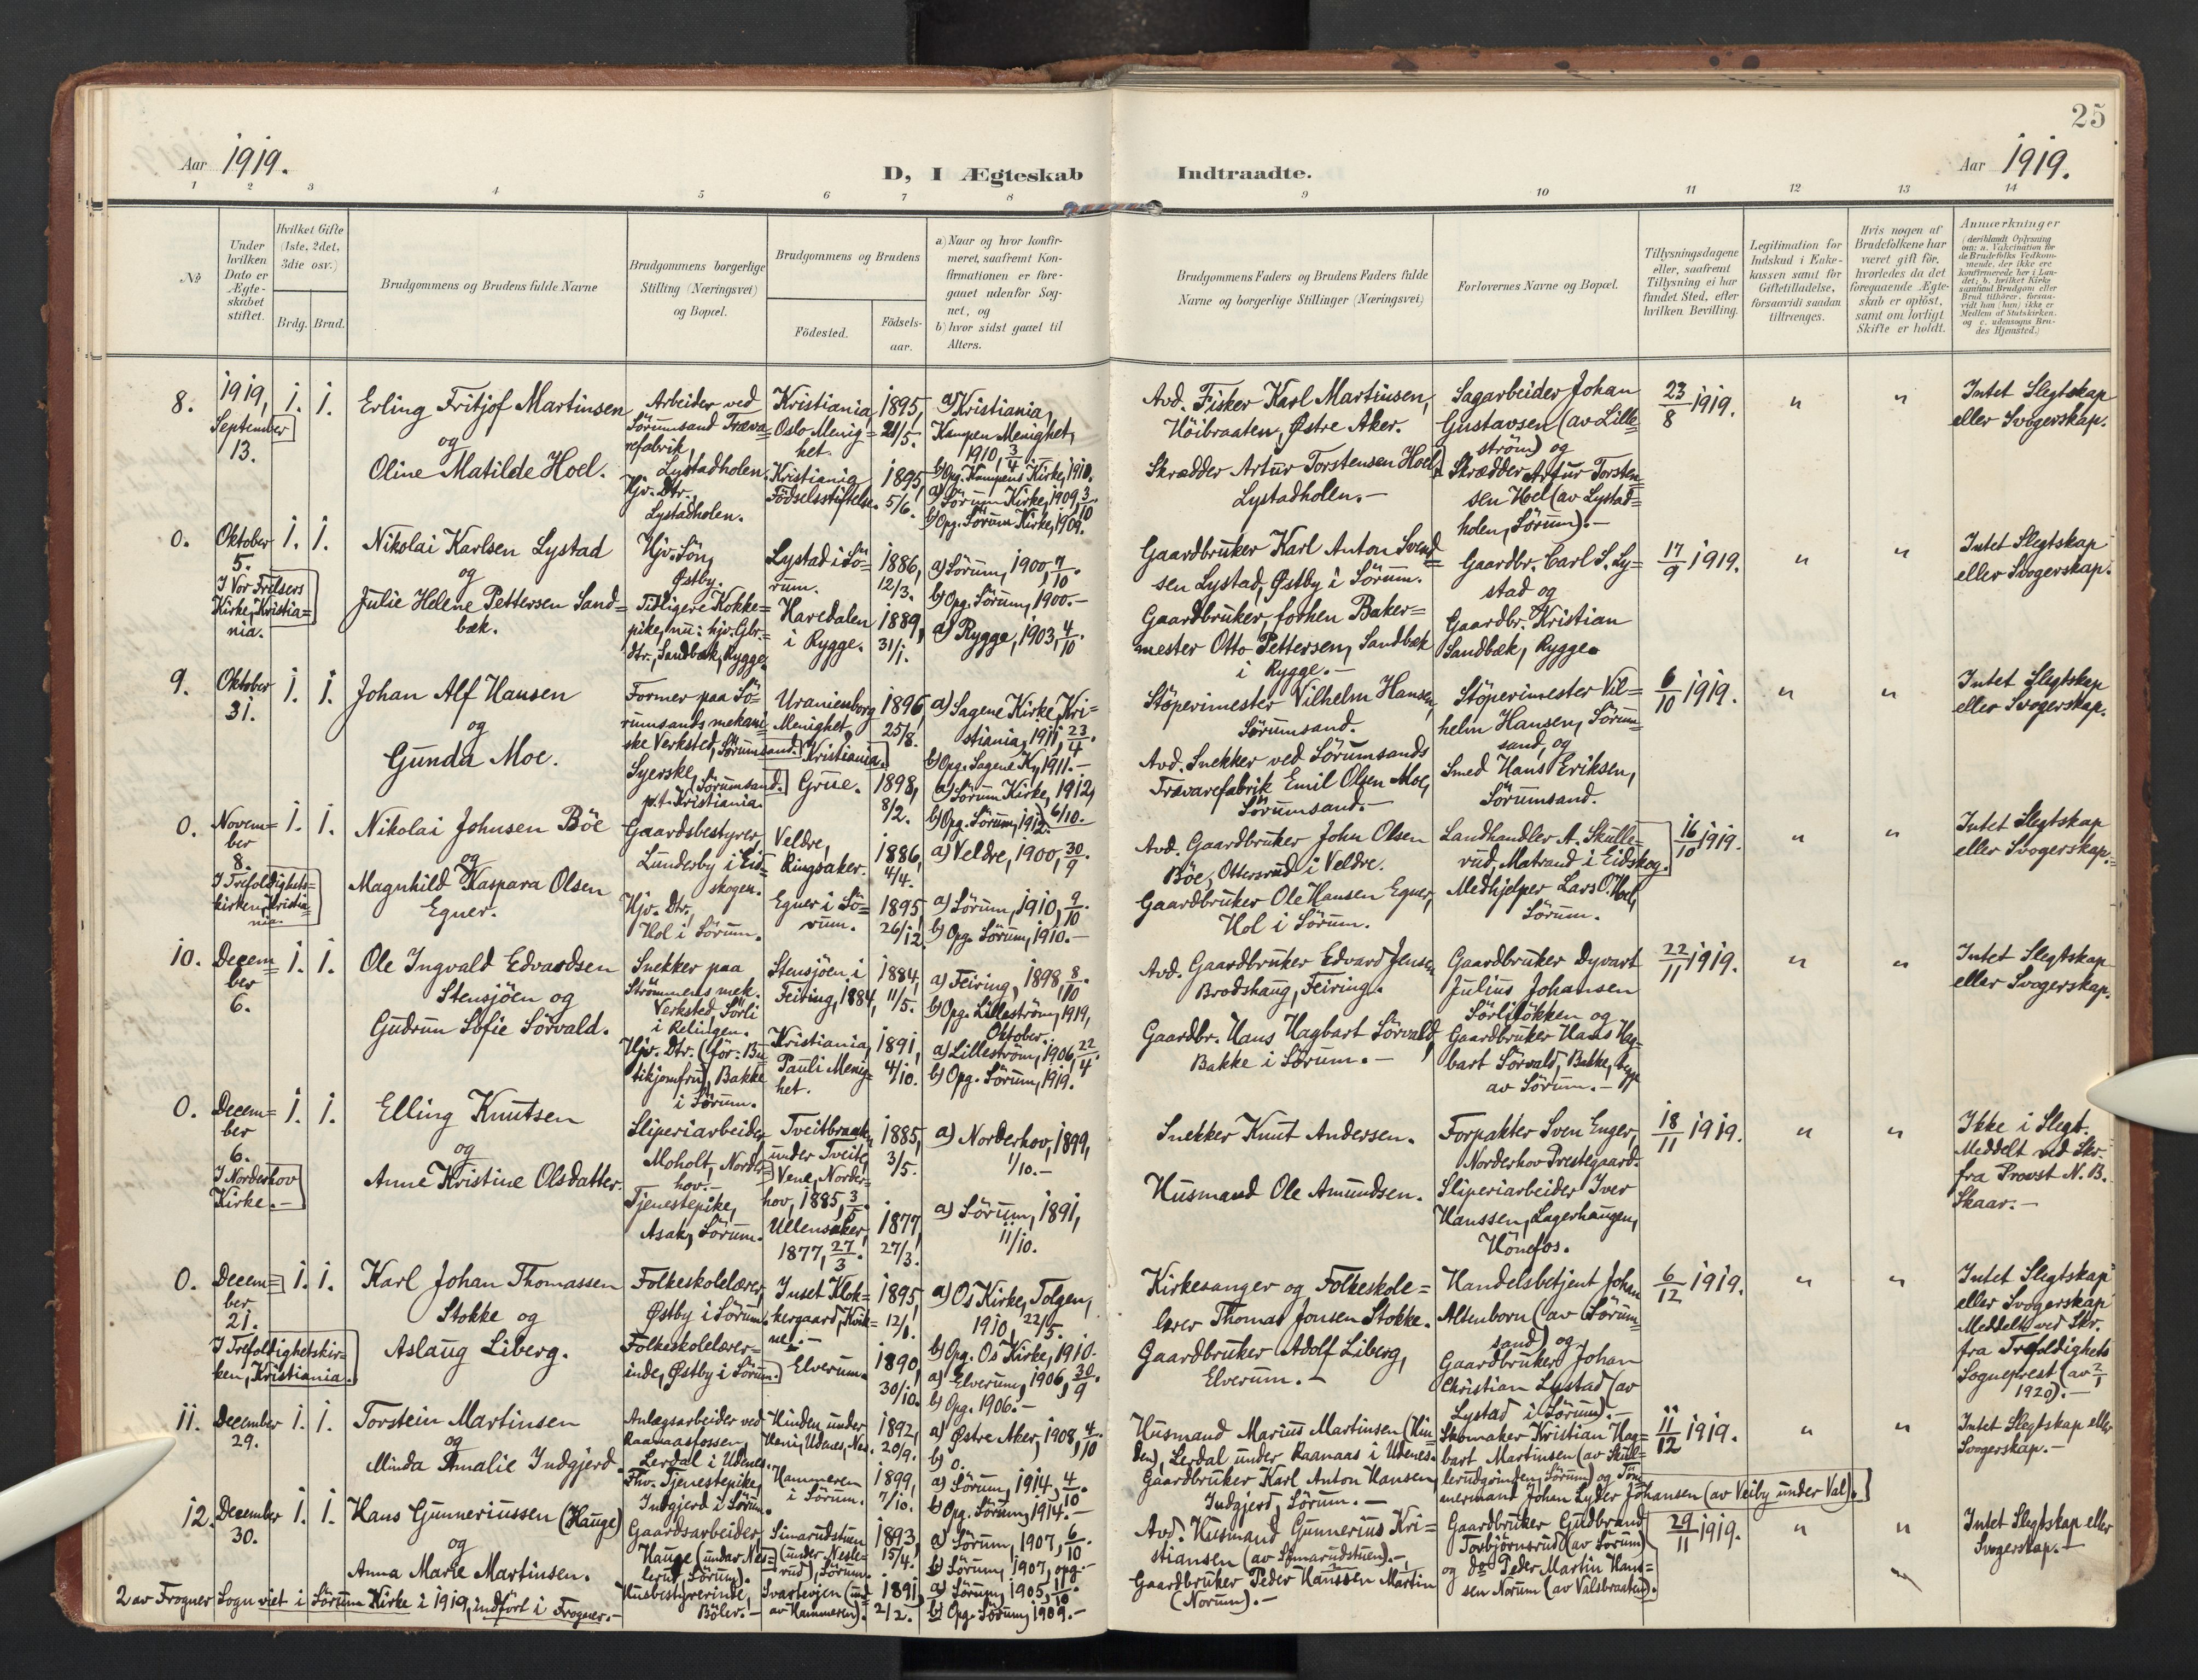 25
Aar 1919.
D, I Ægteskab Indtraadte.
Aar 1919.
1 2 3 4 5 6 7 8 9 10 11 12 13 14
No
Under hvilken Dato er Ægteskabet stiftet.
Hvilket Gifte (1ste, 2det, 3die osv.)
Brdg. Brud.
Brudgommens og Brudens fulde Navne
Brudgommens borgerlige Stilling (Næringsvei) og Bopæl.
Brudgommens og Brudens
Fødested.
Fødselsaar.
a) Naar og hvor konfirmeret, saafremt Konfirmationen er foregaaet udenfor Sognet, og
b) hvor sidst gaaet til Alters.
Brudgommens Faders og Brudens Faders fulde Navne og borgerlige Stillinger (Næringsvei)
Forlovernes Navne og Bopæl.
Tillysningsdagene eller, saafremt Tillysning ei har fundet Sted, efter hvilken Bevilling.
Legitimation for Indskud i Enkekassen samt for Giftetilladelse, forsaavidt saadan tiltrænges.
Hvis nogen af Brudefolkene har været gift før, hvorledes da det foregaaende Ægteskab er opløst, samt om lovligt Skifte er holdt.
Anmærkninger
(deriblandt Oplysning om: a. Vakcination for de Brudefolks Vedkommende, der ikke ere konfirmerede her i Landet; b. hvilket Kirkesamfund Brudgom eller Brud tilhører, forsaavidt han (hun) ikke er Medlem af Statskirken, og c. udensogns Brudes Hjemsted.)
8.
1919,
September
13.
1. 1.
Erling Fritjof Martinsen
og
Oline Matilde Hoel.
Arbeider ved
Sörumsand Træva=
refabrik,
Lystadholen.
Hjv. Dtr.,
Lystadholen.
Kristiania,
Oslo Menig=
het.
Kristiania
Födselsstiftelse.
1895,
21/5.
1895,
5/6.
a) Kristiania,
Kampen Menighet,
1910, 3/4.
b) Opg. Kampens Kirke, 1910.
a) Sörum Kirke, 1909, 3/10.
b) Opg. Sörum Kirke, 1909.
Avd. Fisker Karl Martinsen,
Höibraaten, Østre Aker.
Skrædder Artur Torstensen Hoel,
Lystadholen.-
Sagarbeider Johan
Gustavsen (av Lille=
ström) og
Skrædder Artur Torsten=
sen Hoel (av Lystad=
holen, Sörum).-
23/8 1919.
" "
Intet Slegtskap
eller Svogerskap.
0.
Oktober
5.
I Vor Frelsers
Kirke, Kristia=
nia.
1. 1.
Nikolai Karlsen Lystad
og
Julie Helene Pettersen Sand=
bæk.
Hjv. Sön,
Østby.
Tidligere Kokke=
pike, nu: hjv. Gbr.=
dtr., Sandbæk, Rygge.
Lystad i Sö=
rum.
Haredalen
i Rygge.
1886,
12/3.
1889,
31/1.
a) Sörum, 1900, 7/10.
b) Opg. Sörum, 1900.-
a) Rygge, 1903, 4/10.
Gaardbruker Karl Anton Svend=
sen Lystad, Østby i Sörum.
Gaardbruker, forhen Baker=
mester Otto Pettersen, Sandbæk
i Rygge.-
Gaardbr. Carl S. Ly=
stad og
Gaardbr. Kristian
Sandbæk, Rygge.
17/9 1919.
" "
Intet Slegtskap
eller Svogerskap.
9.
Oktober
31.
1. 1.
Johan Alf Hansen
og
Gunda Moe.
Former paa Sö=
rumsands mekani=
ske Verksted, Sörumsand.
Syerske, (Sörumsand.)
p.t. Kristiania.
Uranienborg
Menighet,
Kristiania.
Grue.
1896,
25/8.
1898,
8/2.
a) Sagene Kirke, Kri=
stiania, 1911, 23/4.
b) Opg. Sagene K, 1911.-
a) Sörum Kirke, 1912, 6/10.
b) Opg. Sörum, 1912.
Støperimester Vilhelm Hansen,
Sörumsand.
Avd. Snekker ved Sörumsands
Trævarefabrik Emil Olsen Moe,
Sörumsand.-
Støperimester Vil=
helm Hansen, Sörum=
sand, og
Smed Hans Eriksen,
Sörumsand.
6/10 1919.
" "
Intet Slegtskap
eller Svogerskap.
0.
Novem=
ber
8.
I Trefoldighets=
kirken, Kristia=
nia.
1. 1.
Nikolai Johnsen Böe
og
Magnhild Kaspara Olsen
Egner.
Gaardsbestyrer,
Lunderby i Eid=
skogen.
Hjv. Dtr.,
Hol i Sörum.
Veldre,
Ringsaker.
Egner i Sö=
rum.
1886,
4/4.
1895
26/12
a) Veldre, 1900, 30/9.
a) Sörum, 1910, 9/10
b) Opg. Sörum, 1910.-
Avd. Gaardbruker John Olsen
Böe, Ottersrud i Veldre.
Gaardbruker Ole Hansen Egner,
Hol i Sörum.
Landhandler A. Skulle=
rud, Matrand i Eidskog.
Medhjelper Lars O. Hoel,
Sörum.
16/10 1919.
" "
Intet Slegtskap
eller Svogerskap.=
10.
Decem=
ber
6.
1. 1.
Ole Ingvald Edvardsen
Stensjöen og
Gudrun Sofie Sörvald.
Snekker paa
Strömmens mek.
Verksted, Sörli
i Relingen.
Hjv. Dtr. (för: Bu=
tikjomfru), Bakke
i Sörum.
Stensjöen i
Feiring, 1884,
Kristiania,
Pauli Menig=
het.
1884,
11/5.
1891,
4/10.
a) Feiring, 1898, 8/10
b) Opg. Lilleström, 1919,
Oktober.
a) Lilleström, 1906, 22/4.
b) Opg. Sörum, 1919.
Avd. Gaardbruker Edvard Jensen
Brodshaug, Feiring.
Gaardbr. Hans Hagbart Sörvald,
Bakke i Sörum.-
Gaardbruker Dyvart
Julius Johansen
Sörlilökken og
Gaardbruker Hans Hag=
bart Sörvald, Bakke, begge
av Sörum.-
22/11 1919.
" "
Intet Slegtskap
eller Svogerskap.
0.
Decem=
ber
6.
I Norderhov
Kirke.-
1. 1.
Elling Knutsen
og
Anne Kristine Olsdatter.
Sliperiarbeider,
Moholt, Norder=
hov.-
Tjenestepike,
Asak, Sörum.
Tveitbraaten
under Tveite,
Vene, Norder=
hov, 1885, 3/5.
Ullensaker,
1877, 27/3.
1885,
3/5.
1877,
27/3.
a) Norderhov, 1899,
1/10.-
a) Sörum, 1891,
11/10.
Snekker Knut Andersen.
Husmand Ole Amundsen.
Forpakter Sven Enger,
Norderhov Prestegaard.
Sliperiarbeider Iver
Hanssen, Lagerhaugen,
Hönefos.
18/11 1919.
" "
Ikke i Slegt.
Meddelt ved Skr.
fra Provst N. B.
Skaar.-
0.
Decem=
ber
21.
I Trefoldighetskir=
ken, Kristiania.
1. 1.
Karl Johan Thomassen
Stokke og
Aslaug Liberg.
Folkeskolelærer,
Østby i Sörum.
Folkeskolelærer=
inde, Østby i Sörum.
Inset Klok=
kergaard, Kvik=
ne.-
Elverum.
1895,
12/1.
1890,
30/10.
a) Os Kirke, Tolgen,
1910, 22/5.
b) Opg. Os Kirke, 1910.
a) Elverum, 1906, 30/9.
b) Opg. 1906.-
Kirkesanger og Folkeskole=
lærer Thomas Jonsen Stokke.
Gaardbruker Adolf Liberg,
Elverum.-
Handelsbetjent Johan
Altenborn (av Sörum=
sand) og
Gaardbruker Johan
Christian Lystad (av
Lystad i Sörum).-
6/12 1919.
" "
Intet Slegtskap
eller Svogerskap
Meddelt ved Skr.
fra Trefoldighets
Sogneprest (av 2/1
1920).-
11.
December
29.
1. 1.
Torstein Martinsen
og
Minda Amalie Indgjerd.
Anlægsarbeider ved
Raanaasfossen,
Lerdal i Udenes.
Fhv. Tjenestepike,
Indgjerd i Sörum.
Hinden under
Heni, Udenes, Nes.
Hammeren
i Sörum.
1892,
20/9.
1899,
7/10.
a) Østre Aker, 1908, 4/10
b) 0.
a) Sörum, 1914, 4/10
b) Opg. Sörum, 1914.-
Husmand Marius Martinsen (Hin=
den), Lerdal under Raanaas i Udenes.
Gaardbruker Karl Anton Hansen
Indgjerd, Sörum.-
Skomaker Kristian Hag=
bart Martinsen (av Skul=
lerudgrinden, Sörum) og Töm=
mermand Johan Lyder Johansen (av Veiby under Val).
11/12 1919.
" "
Intet Slegtskap eller
Svogerskap.-
12.
December
30.
1. 1.
Hans Gunneriussen (Hauge)
og
Anna Marie Martinsen.
Gaardsarbeider,
Hauge (under Nes=
lerud, Sörum).
Husbestyrerinde,
Böler.-
Simarudstuen
(under Nesle=
rud), Sörum.
Svartevjen (und
av Hammeren).
1893,
15/4.
1891,
2/2.
a) Sörum, 1907, 6/10.
b) Sörum, 1907, opg.-
a) Sörum, 1905, 11/10.
b) Opg. Sörum, 1909.-
Avd. Husmand Gunnerius Kri=
stiansen (av Simarudstuen).-
Gaardbruker Peder Hanssen Martin
(Norum).-
Gaardbruker Gudbrand
Torbjörnsrud (av Sörum)
og do Peder Martin Hans=
sen Norum (av Valsbraaten).
29/11 1919.
" "
Intet Slegtskap eller
Svogerskap.-
2 av Frogner Sogn viet i Sörum Kirke i 1919, indført i Frogner.-